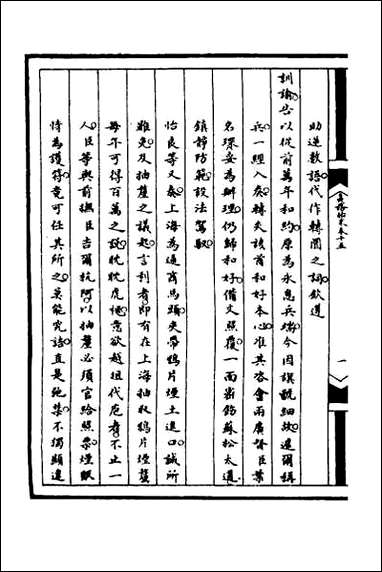 助逆數語代作轉圜之詞欽遵
訓諭告以從前萬年和約原為永息兵端今因誤翫細故遽爾稱
兵一經入奏轉失該酋和好本心准其咨會兩廣督臣葉
名琛妥為辦理仍歸和好備文照覆一面密飭蘇松太道
鎮靜防範設法駕馭
怡良等又奏上海為通商馬頭夾帶鴉片煙土進口誠所
難免及抽釐之議起言利者即有在上海抽收鴉片煙釐
每年可得百萬之說眈眈虎視意欲越俎代庖者不止一
人臣等與前撫臣吉爾杭阿以抽釐必須官給照票煙販
恃為護符竟可任其所之莫能究詰直是弛禁不獨顯違
卷十五
一